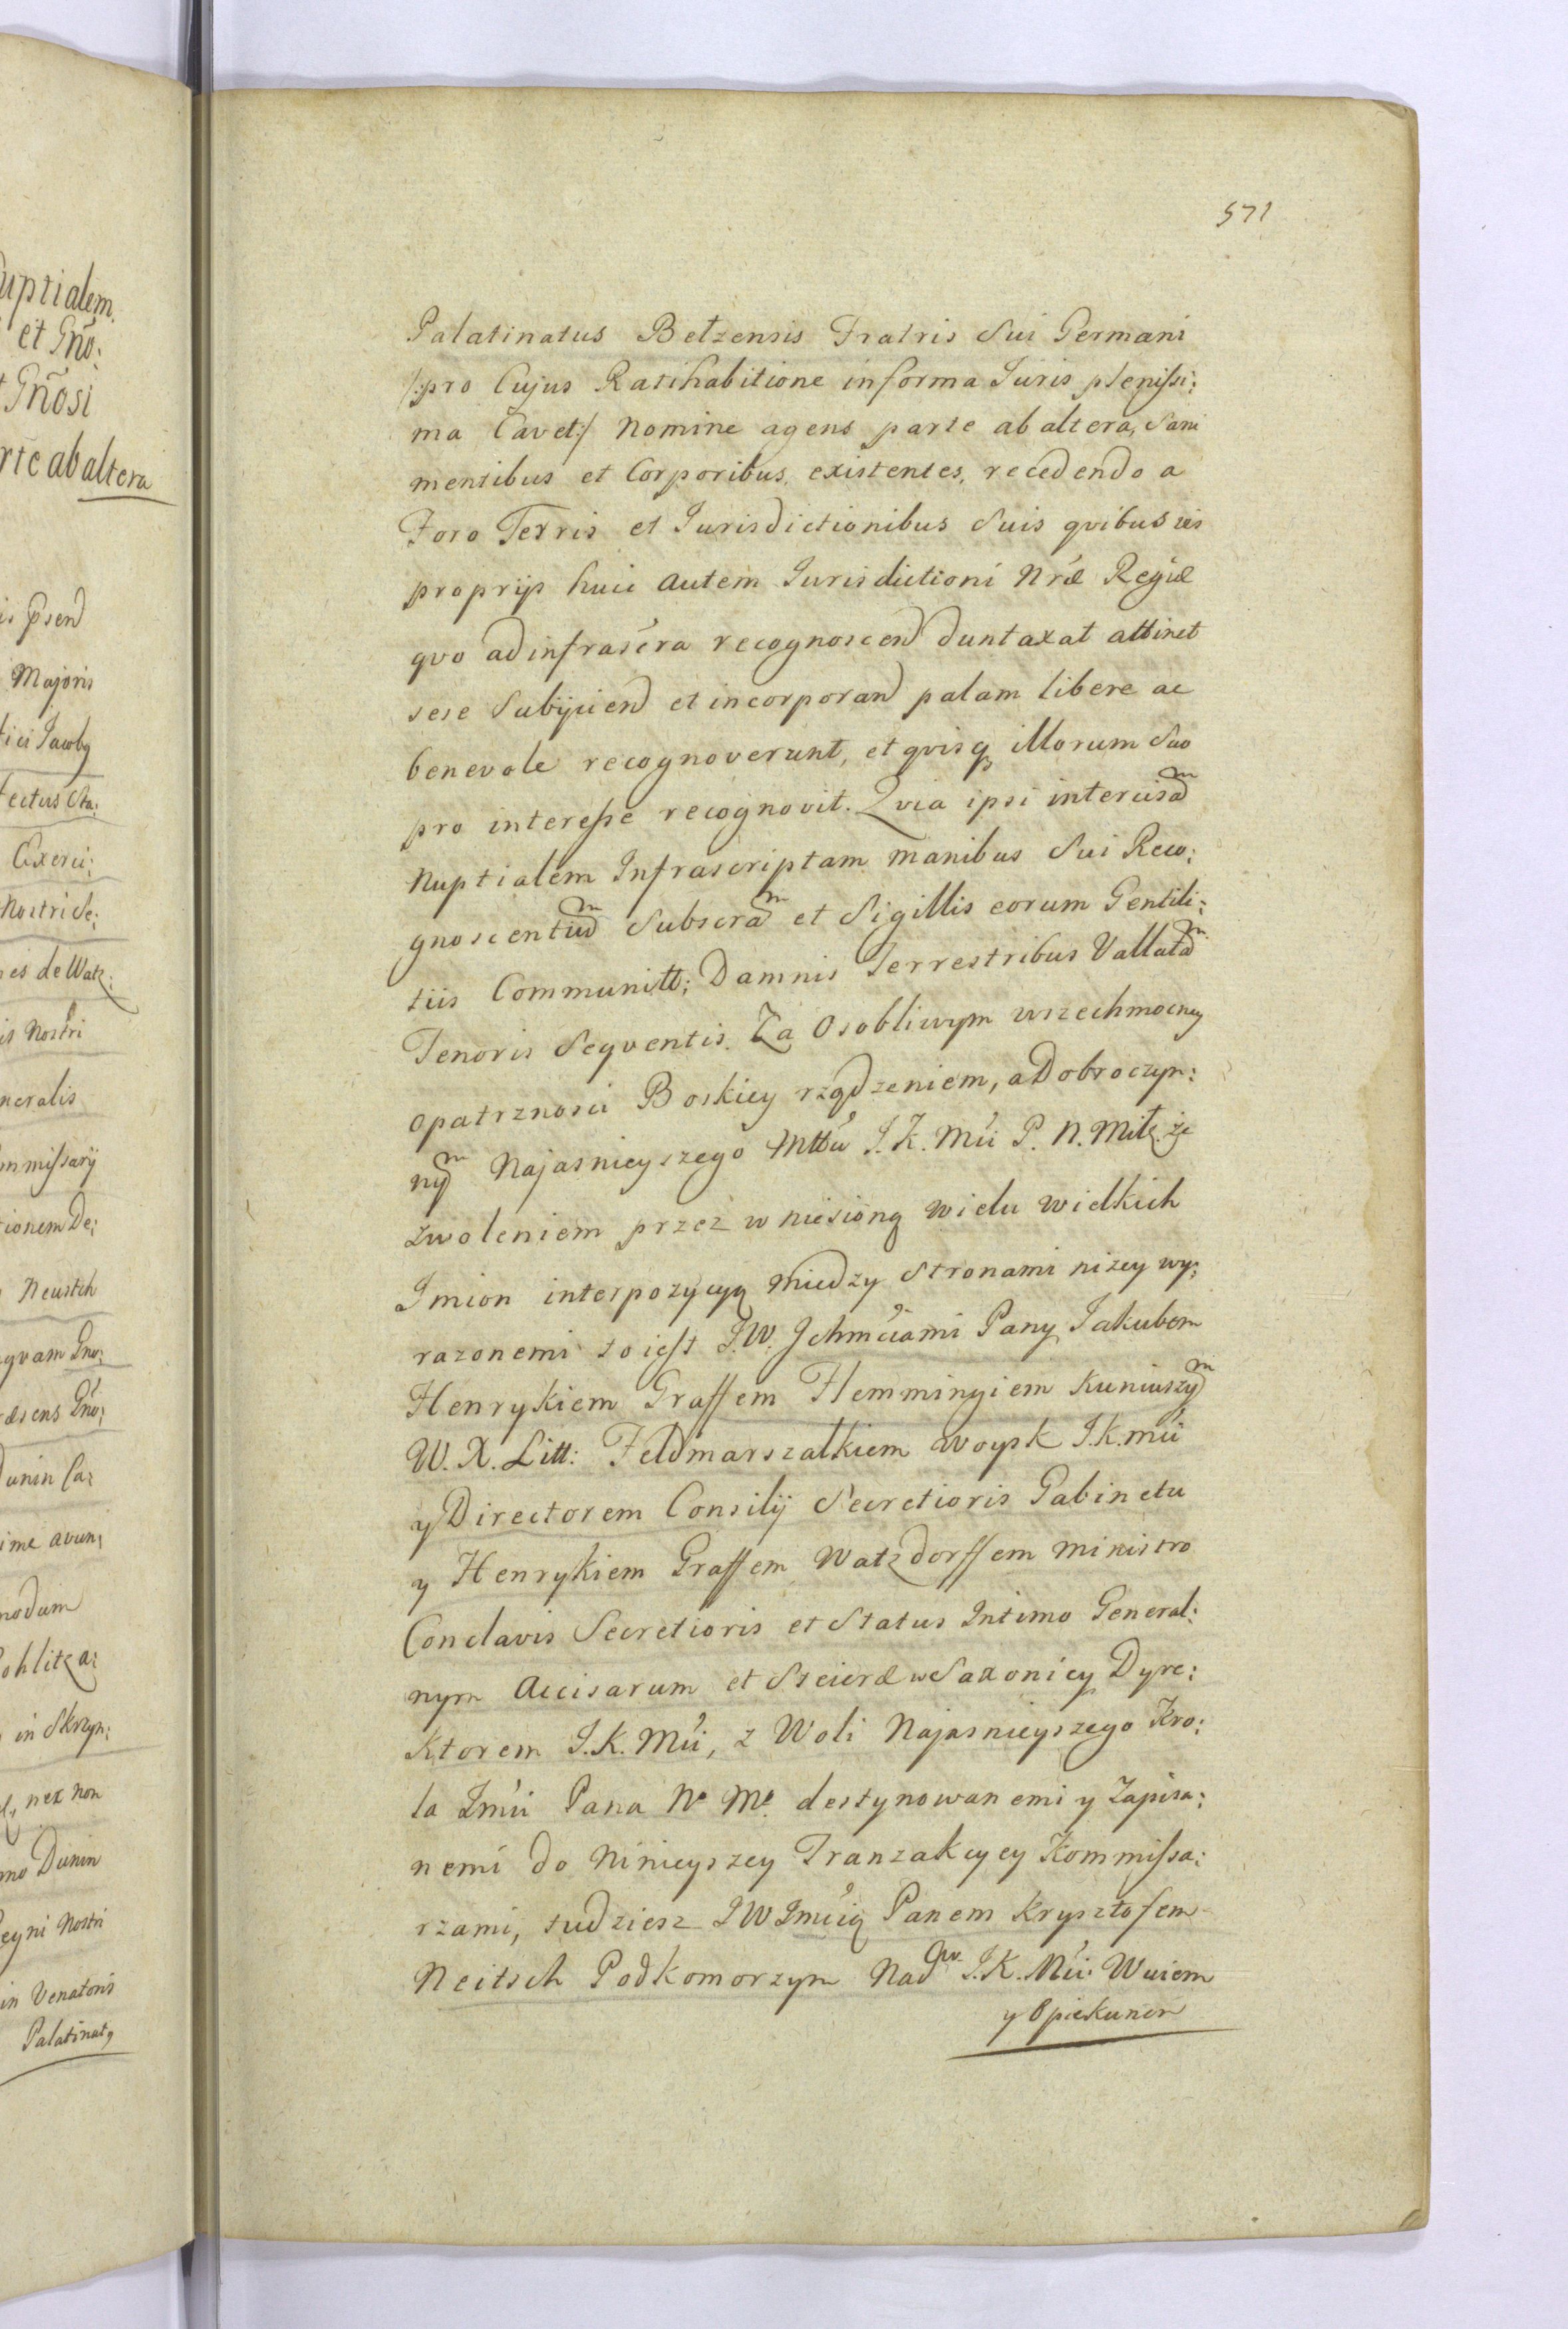 uptialem
et Gnō:
Gnōsi
rte ab altera
is psend
Majoris
tici Jacoby
ectus Sta:
Exerci:
Nostri Se:
es de Watz:
is Nostri
neralis
mmissarij
tionem De:
Neustch
qvam Gno:
dsens Gnó:
Dunin Ca:
ime avun:
modum
ohlitz a:
in Skrzyn:
nex non
mo Dunin
egni Nostri
in Venatoris
Palatinatq
571
Palatinatus Betzensis Fratris Sui Germani
/:pro Cujus Ratihabitione in forma Juris plenissi:
ma Cavet:/ Nomine agens parte ab altera, Sani
mentibus et Corporibus existentes, recedendo a
Foro Terris et Jurisdictionibus Suis qvibusvis
proprijs huic autem Jurisdictioni Nræ Regiæ
qvo ad infrascra recognoscend duntaxat attinet
sese Subijciend et incorporand palam libere ac
benevole recognoverunt, et qvisq illorum Suo
pro interesse recognovit. Qvia ipsi intercisam
Nuptialem Infrascriptam manibus Sui Reco:
gnoscentium Subscram et Sigillis eorum Gentili:
tiis Communitt: Damnis Terrestribus Vallatam
Tenoris Seqventis. Za Osobliwym wszechmocney
Opatrznosci Boskiey rządzeniem, a Dobroczyn:
nym Najasnieyszego Mttú J.K.Mći P. N. Miłę. ze
zwoleniem przez wniesioną wielu wielkich
Imion interpozycyą miedzy Stronami nizey wy:
razonemi to iest J.W. Ichmściami Pany Jakubem
Henrykiem Graffem Flemmingiem Kuniuszym
W. X. Litt: Feldmarszalkiem woysk J.K.mći
y Directorem Consilij Secretioris Gabinetu
y Henrykiem Graffem Watzdorffem ministro
Conclavis Secretioris et Status Intimo General:
nym Accisarum et Steieræ w Saxoniey Dyre:
Ktorem J.K.Mći, z Woli Najasnieyszego Kro:
la Jmći Pana Nº Mº. destynowanemi y Zapisa:
nemi do Ninieyszey Tranzakcyey Kommissa:
rzami, tudziesz JW Jmścią Panem Krysztofem
Neitsch Podkomorzym Nadw J.K.Mći Wuiem
y Opiekunem